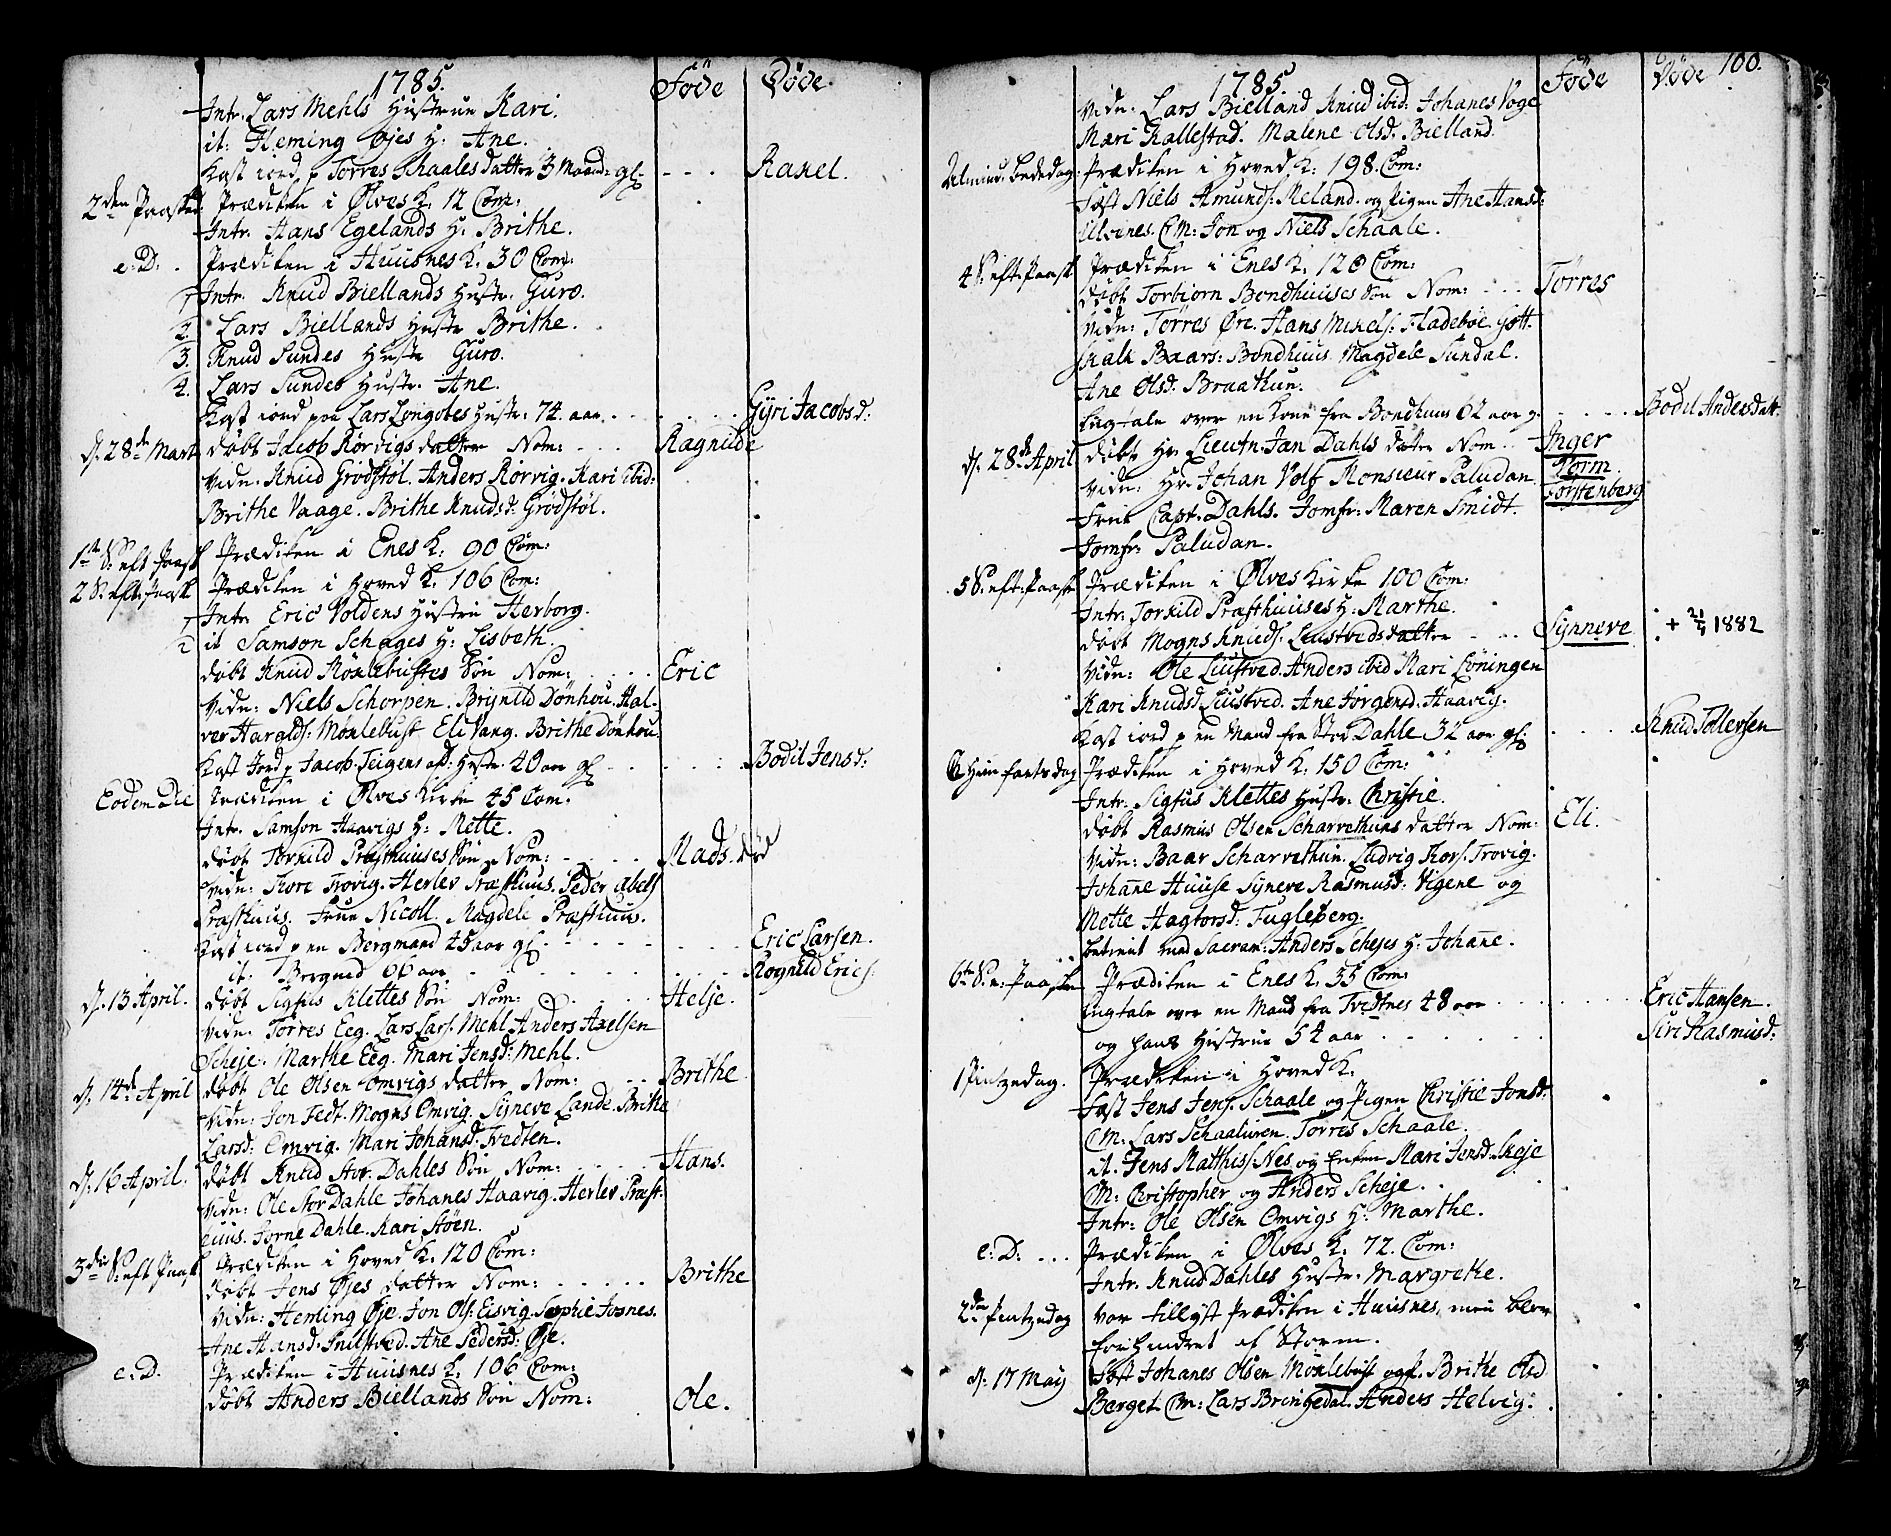 1785. Føde Døde.
Intr. Lars Mehls Hustrue Kari.
it: Heming Øjes H: Ane.
Kast iord p Torres Skaales datter 3 Maan: gl: - - - Raxel.
2den Paaske Prædiken i Ølves K. 12 Com:
Intr. Hans Egelands H: Brithe.
e: D: Prædiken i Huusnes K. 30 Com:
1 Intr. Knud Biellands Hustr. Guro.
2. Lars Biellands Hustr Brithe.
3. Knud Sundes Hustr Guro.
4. Lars Sundes Hustr. Ane.
Kast iord paa Lars Longotes Hustr: 74. aar. Gyri Jacobsd:
d. 28de Mart døbt Jacob Rørvigs datter Nom: Ragnilde
Vidn. Knud Grødstøl. Anders Rørvig. Kari ibid:
Brithe Vaage. Brithe Knudsd. Grødstøl.
1te S: eft Paask Prædiken i Enes K. 90 Com:
2 S: eft: Paask Prædiken i Hoved K. 106 Com:
1 Intr. Eric Voldens Hustru Herborg.
2 it Samson Schages H: Lisbeth.
døbt Knud Møxlebustes Søn Nom: Eric
Vidn: Niels Schorpen. Brynild Dønhou. Hal-
ver Haralds: Møxlebust Eli Vang. Brithe Dønhou.
Kast Jord p Jacob Teigens afd: Hustr. 40 aar gl Bodil Jensd:
Eodem Die Prædiken i Ølves Kirke 45 Com.
Intr. Samson Haavigs H: Mette.
døbt Torkild Præsthuuses Søn Nom: Mads. død
Vidn: Thore Trovig. Herlev Præsthuus. Peder Abels
Præsthuus. Frue Nicoll. Magdeli Præsthuus.
Kast iord p en Bergmand 45 aar gl Eric Larsen.
it. Bergmd 66 aar Rognild Erics:
d. 13 April. døbt Sigfus Klettes Søn Nom: Helje.
Vidn: Torres Eeg. Lars Lars: Mehl Anders Axelsen
Scheje. Marthe Eeg. Mari Jensd: Mehl.
d. 14de April døbt Ole Olsen Omvigs datter Nom: Brithe
Vidn: Jon Tedt. Mogns Omvig. Syneve Lande. Brithe
Larsd: Omvig. Mari Johansd. Tvedten.
d. 16 April. døbt Knud Stor. Dahles Søn Nom: Hans.
Vidn: Ole Stor Dahle Johanes Haavig. Herlev Præst-
huus. Jorne Dahle. Kari Støen.
3die S: eft Paask Prædiken i Hoved K. 120 Com:
døbt Jens Øjes datter Nom: Brithe
Vidn: Heming Øje. Jon Ols: Eisvig. Sophie Josnes.
Ane Hansd. Snilstved. Ane Pedersd: Øje.
e: D. Prædiken i Huusnes K. 106 Com:
døbt Anders Biellands Søn Nom: Ole.
1785. Føde Døde 100.
Vidn. Lars Bielland Knud ibid: Johanes Voge
Mari Kallestad. Malene Olsd. Bielland.
Almind. Bededag: Prædiken i Hoved K. 198. Com:
Fæst Niels Amunds: Meland og Pigen Ane Hansd:
Ulvenes. CM: Jon og Niels Schaale.
4 S. eft: Paask Prædiken i Enes K. 120 Com:
døbt Torbiorn Bondhuuses Søn Nom: Tørres
Vidn: Tørres Øre. Hans Mikels: Fladebøe. Gott-
skalk Baars: Bondhuus. Magdele Sundal.
Ane Olsd. Braathun.
Liigtale over en Kone fra Bondhuus 62 aar g. Bodil Andersdatt.
d. 28de April døbt Hr Lieutn. Jan Dahls datter Nom. Inger
Vidn: Hr. Johan Volf Monsieur Paludan Worm
Frue Capt. Dahls. Jomfr: Maren Smidt. Forstenberg
Jomfr: Paludan.
5 S: eft: Paask Prædiken i Ølves Kirke 100 Com:
Intr: Torkild Præsthuuses H: Marthe.
døbt Mogns Knuds: Leustvedsdatter Synneve + 2/4 1882
Vidn: Ole Liustved. Anders ibid Mari Løningen
Kari Knudsd. Liustved. Ane Jørgensd. Haavig.
Kast iord p en Mand fra Stor Dahle 32 aar gl: Knud Tollefsen
Himfartsdag Prædiken i Hoved K. 150 Com:
Intr: Sigfus Klettes Hustr. Christie.
døbt Rasmus Olsen Scharvethuns datter Nom: Eli.
Vidn: Baar Scharvethun. Ludvig Thors: Trovig.
Johane Huuse Syneve Rasmusd: Vigene og
Mette Hagtorsd: Fugleberg.
betient med Sacram: Anders Schejes H: Johane.
6te S: e: Paasken Prædiken i Enes K. 55 Com:
Liigtale over en Mand fra Tvedtnes 48 aar Eric Hansen.
og hans Hustrue 54 aar Siri Rasmusd:
1 Pintzedag. Prædiken i Hoved K.
Fæst Jens Jens: Schaale og Pigen Christie Jonsd:
CM: Lars Schaaluren. Torres Schaale.
it. Jens Matthiss: Nes og Enken Mari Jensd. Skeje
CM: Christopher og Anders Scheje.
Intr: Ole Olsen Omvigs H: Marthe.
e: D: Prædiken i Ølves K. 72. Com:
Intr. Knud Dahles Hustr. Margrethe.
2den Pintzedag Var tillyst Prædiken i Huusnes, men blev
forhindret af Storm.
d. 17 May Fæst Johanes Olsen Møxlebust og P. Brithe Olsd
Berget CM: Lars Bringedal. Anders Helvig.